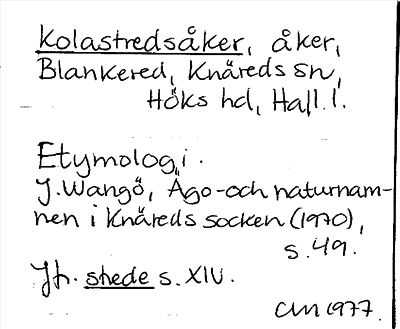 Kolastredsåker, åker,
Blankered, Knäreds sn,
Höks hd, Hall. l.
Etymologi.
J. Wangö, Ägo- och naturnam-
nen i Knäreds socken (1970),
s. 49.
Jh. stede s. XIV.
CM 1977.